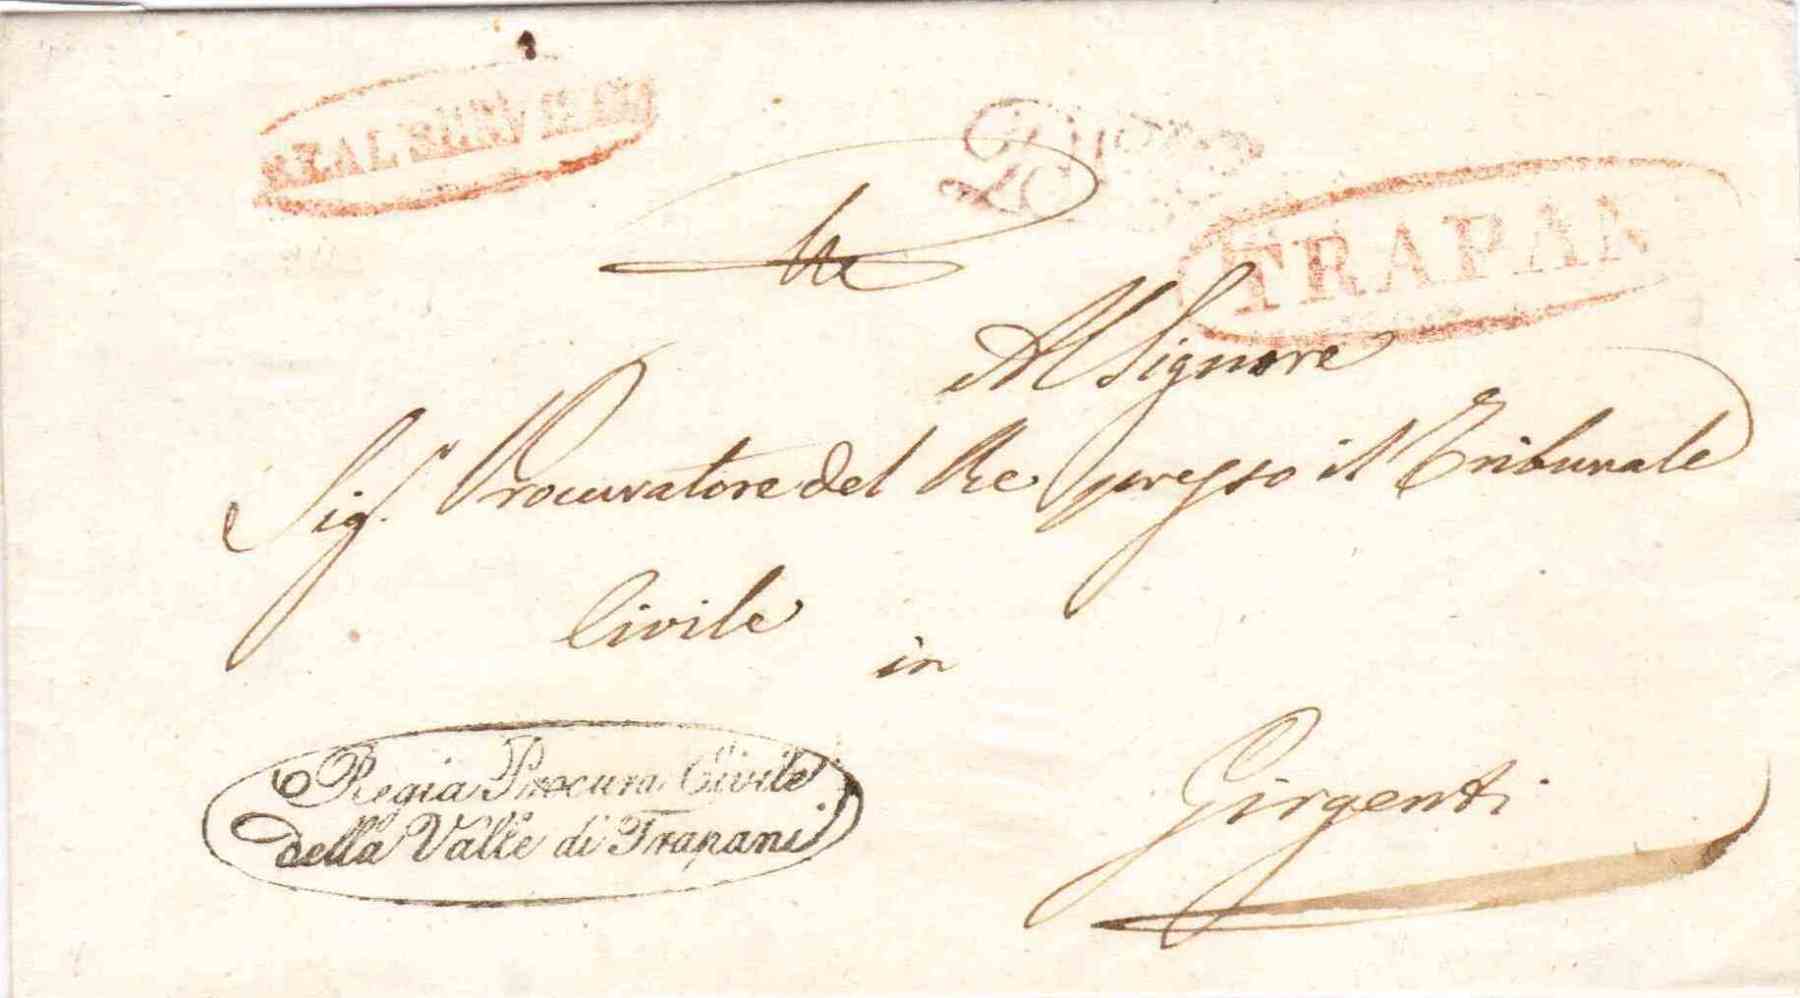 REAL SERVIZIO
TRAPAN
Al Signore
Sig.r Procuratore del Re presso il Tribunale
Civile
in
Girgenti
Regia Procura Civile
della Valle di Trapani